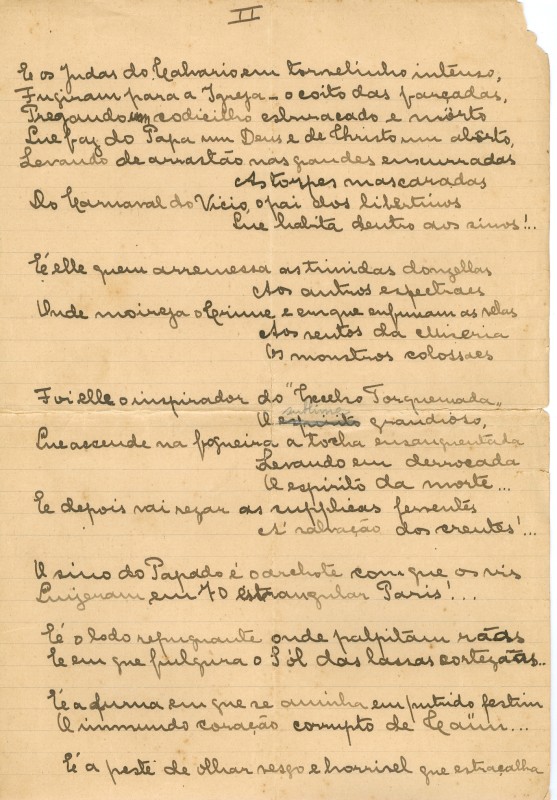 II
E os Judas do Calvario em torvelinho intenso,
Fugiram para a Igreja — o coito das farçadas,
Pregando um codicilho esburacado e morto
Que faz do Papa um Deus e de Christo um abôrto,
Levando de arrastão nas grandes enxurradas
As torpes mascaradas
Do Carnaval do Vicio, o pai dos libertinos
Que habita dentro aos sinos!..
É elle quem arremessa as timidas donzellas
Aos antros espectraes
Onde moireja o Crime e em que enfunam as velas
Aos ventos da Miseria
Os monstros colossaes
Foi elle o inspirador do "Excelso Torquemada"
sublime
O espirito grandioso,
Que accende na fogueira a tocha ensanguentada
Levando em derrocada
O espirito da morte...
E depois vai rezar as supplicas ferventes
Á salvação dos crentes!...
O sino do Papado é o archote com que os vis
Quizeram em 70 estrangular Paris!...
É o lodo repugnante onde palpitam rãas
E em que fulgura o Sól das lassas cortezãas..
É a furna em que se aninha em putrido festim
O immundo coração corrupto de Caïm...
É a peste de olhar vesgo e horrivel que estraçalha